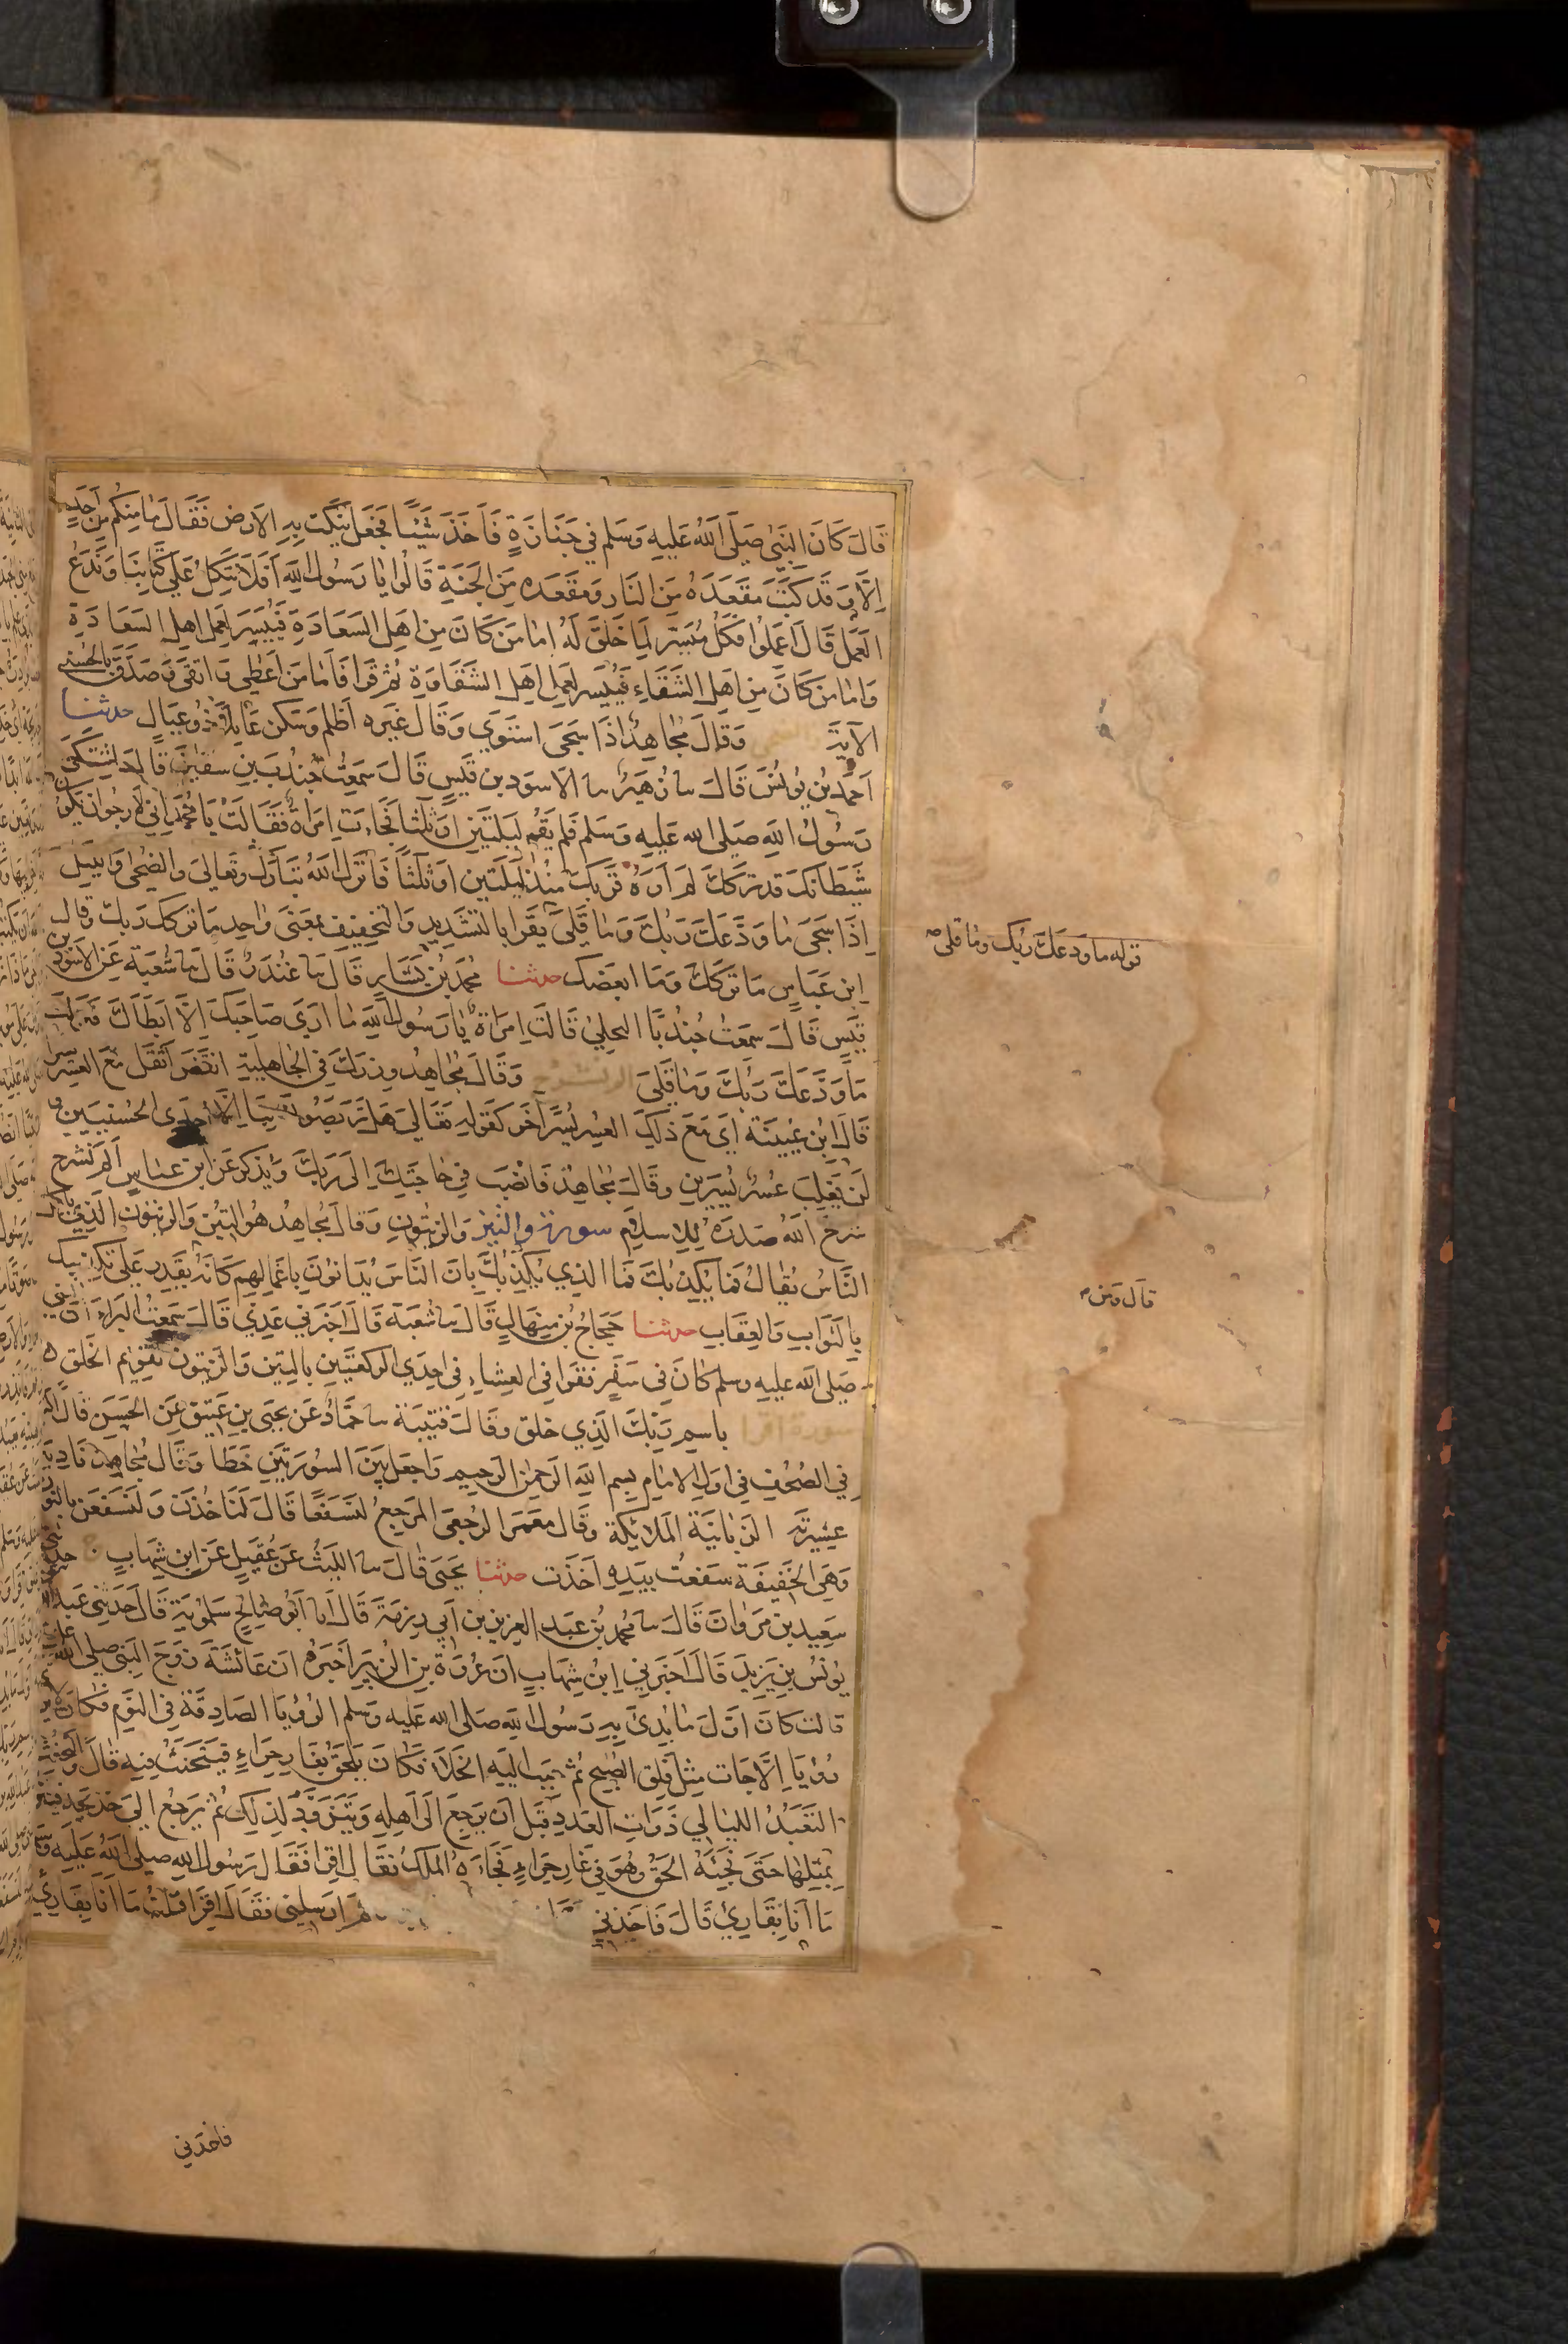 قَالَ كَانَ النَّبِيُّ صَلَّى اللَّهُ عَلَيْهِ وَسَلَّم فِي جَنَازَةٍ فَاَخَذَ شَيْئًا فَجَعَلَ يَنْكُتُ بِهِ الاَرْضَ فَقَالَ مَا مِنْكُم مِنْ اَحَدٍ
اِلَّا وَقَد كُتِبَ مَقْعَدُهُ مِنَ النَّارِ وَمَقْعَدُه مِنَ الجَنَّةِ قَالُوا يَا رَسُولَ اللَّهِ اَفَلَا نَتَّكِلُ عَلَى كِتَابِنَا وَنَدَعُ
العَمَلَ قَالَ اعْمَلُوا فَكُلٌّ مُيَسَّرٌ لِمَا خُلِقَ لَهُ اما مَن كَانَ مِن اَهلِ السَعَادَةِ فَيُيَسَّر لِعَمَلِ اهل السَعَادَةِ
وَاما من كَانَ مِن اهلِ الشَقَاءِ فَيُيَسر لِعَمَلِ اَهل الشَقَاوَةِ ثُمَّ قَرَا فَاَمَا مَن اَعْطَى وَاتَّقَى وَصَدَّقَ بالحُسنى
الآيَةَ وَقَالَ مُجَاهِدٌ اِذَا سَجَى استَوَى وَقَالَ غَيرُه اَظْلَم وَسَكَن عَايِلًا ذُو عِيَالٍ حدثنا
اَحمَد بْن يُونُسَ قَالَ سا زُهَيرٌ سا الاسوَد بن قَيسٍ قَالَ سَمِعتُ جُندُبَ بن سُفيٰنَ قَالَ اشتَكَى
رَسُولُ اللَّهِ صَلى الله عَلَيهِ وَسَلم فَلم يَقُم لَيلَتَين او ثَلٰثا فَجَاءت امراةٌ فَقَالَتْ يَا مُحَمَّد اِنّى لَاَرجُوا ان يَكُوْ
شَيطَانكَ قد تَركَكَ لَم اَرَهُ قَرِبَكَ مُنْذُ لَيلَتَين او ثَلٰثًا فَاَنزَلَ اللَّهُ تَبَارَكَ وَتعَالَى وَالضُحَى وَاللَيل
اِذَا سَجَى مَا وَدَّعَكَ رَبُّكَ وَمَا قَلَى يُقرَا بالتَشدِيدِ وَالتَخفِيفِ بِمَعنَى وَاحِد مَا تركك رَبكَ وقالَ
ابن عَبَاسٍ مَا تَركَكَ وَمَا ابغضَك حدثنا مُحَمدُ بْن بَشَارٍ قَالَ سا غُندَرٌ قَالَ سا شُعبَة عَن الاسوَد بن
قَيسٍ قَالَ سَمِعتُ جُندُبًا البجلِيّ قَالَت امراةٌ يَا رَسُول اللَّهِ مَا اَرَى صَاحِبَكَ اِلَّا ابطَاكَ فَنَزلَت
مَا وَدَّعَكَ رَبُّكَ وَمَا قَلَى الم نشرح وَقَالَ مُجَاهِد وِزرَكَ فِي الجَاهِلِيَة انقَضَ اَثقَلَ مَعَ العُسر يسرا
قَالَ ابن عُيَينَة اَى مَعَ ذَلِكَ العُسر يُسرًا آخَر كَقَولِهِ تَعَالَى هَل تَربَّصُونَ بِنَا اِلَّا اِحدَى الحُسنَيَين و
لَن يَغلِبَ عُسرٌ يُسرَينِ وَقَالَ مُجَاهِدٌ فَانصَب فِي حَاجَتِكَ اِلَى رَبِّكَ وَيُذكر عَن ابن عَباس اَلَم نَشرح
شَرحَ اللَّهُ صَدرَهُ لِلاِسلَامِ سورة والتين وَالزَيتُونِ وَقَالَ مُجَاهِدُ هُوَ التِينُ وَالزَيتُون الَذِى ياكل
النَاسُ يُقَالُ فَمَا يُكَذِبُكَ فَمَا الذِي يُكَذِبُكَ بِاَنَ النَاسَ يُدَانُونَ بِاَعمَالِهِم كَانَهُ يَقدِر عَلَى تكذِيبِك
بِالثَوَابِ وَالعِقَابِ حدثنا حَجَاجُ بْن مِنهَالٍ قَالَ سا شُعبَة قَالَ اَخبَرنِي عَدِىٌّ قَالَ سَمِعتُ البَرَاءَ ان النبي
صَلى الله عليه وسلم كَانَ فِي سَفَرٍ فقَرَا فِي العِشَاءِ فِي احدَى الرَكعَتَينِ بِالتِينِ وَالزَيتُونِ تَقويِم الخَلق
سورة اقرا باسمِ رَبِّكَ الَذِي خلق وقَالَ قُتَيبَة سا حَمَّادٌ عَن يَحيَى بنِ عَتِيقٍ عَنِ الحَسَنِ قَالَ اكتب
فِي المُصحَفِ فِي اوَلِ الامَامِ بِسم اللَّهِ الرَحمٰنِ الرَحِيمِ وَاجعَل بَينَ السُورَتَينِ خَطًا وَقَال مُجَاهِدٌ نَادِيَهُ
عَشِيرَتَهُ الزَبَانِيَةَ المَلَائِكَة وَقَالَ مَعمَر الرُجعَى المَرجِعُ لَنَسفَعًا قَالَ لَنَاخُذَنَ وَلَنَسفَعَن بالنو
وَهِيَ الخَفِيفَة سَفَعتُ بِيَدِهِ اَخَذت حدثنا يَحيَى قَالَ سا اللَيثُ عَن عُقَيلٍ عَن ابنِ شِهَابٍ ح حدثني
سَعِيد بن مَروَانَ قَالَ سا مُحَمد بْن عَبد العَزِيزِ بن اَبي رِزمَةَ قَالَ اَنا اَبُو صَالِحٍ سَلمُويَة قَالَ حَدثَنِي عَبد الله
يُونُسَ بنِ يَزِيدَ قَالَ اَخبَرنِي ابنُ شِهَابٍ ان عُروَةَ بن الزُبَيرِ اَخبَرَهُ ان عَائشَةَ زَوجَ النَبِي صلى الله عليه
قالت كَانَ اوَّلَ مَا بُدِئَ بِهِ رَسُولُ اللَّهِ صلى الله عَلَيه وَسَلم الرُؤيَا الصَادِقَة فِي النَوم فَكَانَ لا يرى
رُؤيَا اِلَّا جَات مِثلَ فَلَقِ الصُبحِ ثُم حُبب اليهِ الخَلَا فَكَانَ يَلحَقُ بِغَارِ حِرَاءٍ فَيَتَحَنَّث فِيه قَالَ وَالتحنث
التَعَبُد الليَالِي ذَوَاتِ العَدَدِ قَبلَ اَن يَرجِعَ اِلَى اَهلِهِ وَيَتَزَوَد لِذَلِك ثُم يَرجعُ الَى خَدِيجَة فيتزود
بِمِثلِهَا حَتَى فَجِئَهُ الحَقُ وَهُوَ فِي غَارِ حِرَاءٍ فَجَاءَهُ المَلَكُ فقَالَ اقرَا فَقَالَ رَسُولُ اللهِ صلى اللهُ عَلَيهِ وَسَلم
مَا اَنَا بِقَارِئ قَالَ فَاَخَذنِي ثُم اَرسَلِني فقَالَ اقرَا قلتُ مَا اَنَا بِقَارِئ
قوله مَا وَدعَكَ رَبُّك وَمَا قَلى
قال ومن
فاخذني